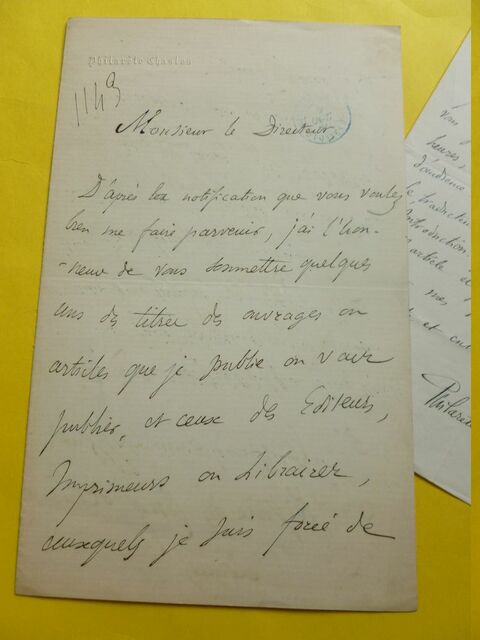 Philarète Chasles
1143
Monsieur le Directeur
D'après la notification que vous voulez
bien me faire parvenir, j'ai l'hon-
-neur de vous soumettre quelques
uns des titres des ouvrages ou
articles que je publie ou vais
publier, et ceux des Editeurs,
Imprimeurs ou Libraires,
auxquels je suis forcé de
vous
heures
d'audience
traduction
Introduction
article et
mes
et
Philarète